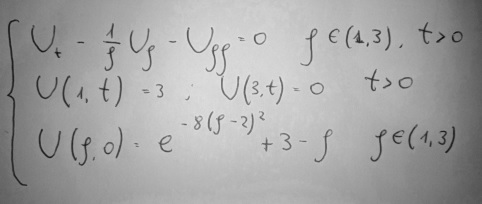 U_t - 1/ρ U_ρ - U_ρρ = 0 ρ ∈ (1,3), t > 0
U(1, t) = 3 ; U(3, t) = 0 t > 0
U(ρ, 0) = e^{-8(ρ-2)^2} + 3 - ρ ρ ∈ (1,3)